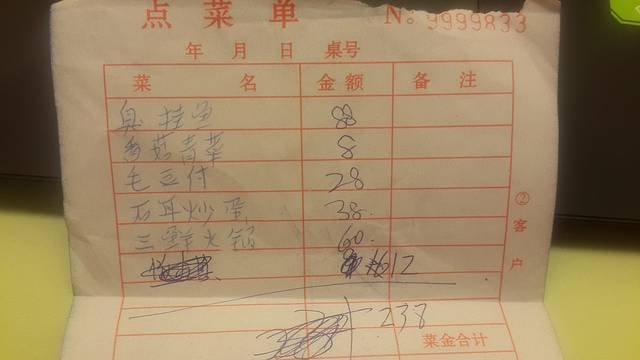 点菜单 No 9999833
年 月 日 桌号
菜 名 金额 备 注
臭桂鱼 88
香菇青菜 8
毛豆付 28
石耳炒蛋 38.
三鲜火锅 60.
12
238
菜金合计
②客户